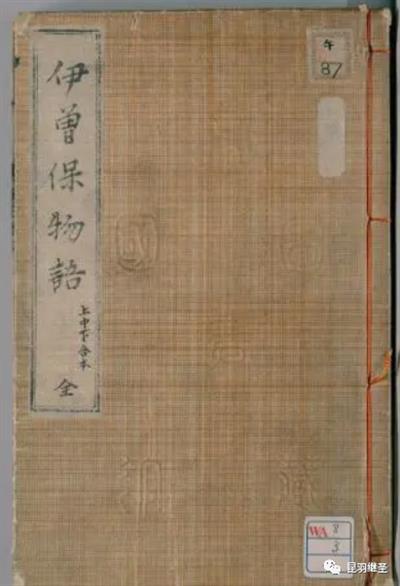 伊曽保物語
上中下合本
全
午
87
WA
8
3
昆羽继圣